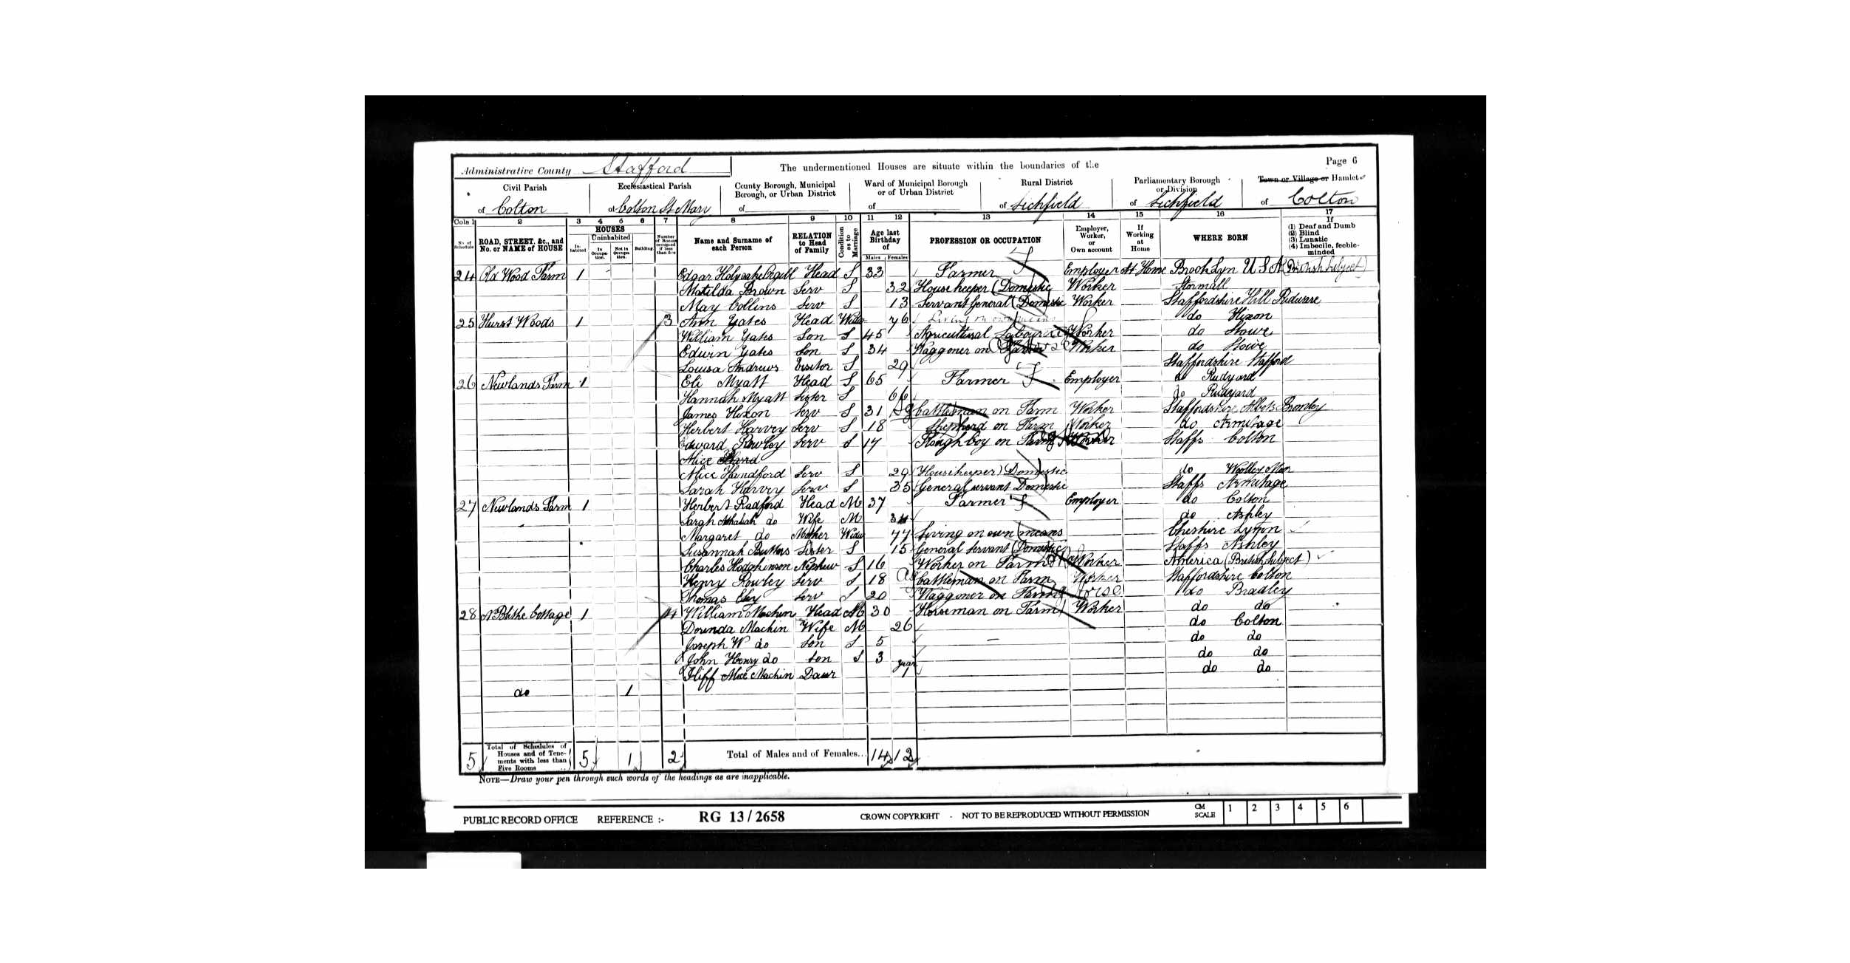 Administrative County Stafford
The undermentioned Houses are situate within the boundaries of the
Page 6
Civil Parish of Colton
Ecclesiastical Parish of Colton St Mary
County Borough, Municipal Borough, or Urban District of
Ward of Municipal Borough or of Urban District of
Rural District of Lichfield
Parliamentary Borough or Division of Lichfield
Town or Village or Hamlet of Colton
Cols 1 2 3 4 5 6 7 8 9 10 11 12 13 14 15 16 17
No. of Schedule
ROAD, STREET, &c., and No. or NAME of HOUSE
HOUSES
Inhabited
Uninhabited
In Occupation
Not in Occupation
Building
Name and Surname of each Person
RELATION to Head of Family
Condition as to Marriage
Age last Birthday of
Males Females
PROFESSION OR OCCUPATION
Employer, Worker, or Own account
If Working at Home
WHERE BORN
If (1) Deaf and Dumb (2) Blind (3) Lunatic (4) Imbecile, feeble-minded
24 Wood Farm 1 Edgar Head S 33 Farmer Employer At Home Brooklyn U S A (British Subject)
Matilda Brown Serv S 32 Housekeeper (Domestic Worker
May Collins Serv S 13 Servant General (Domestic Worker Staffordshire Hill Ridware
25 Hurst Woods 1 3 Ann Yates Head Widow 76 do Hixon
William Yates Son S 45 Agricultural Labourer Worker do Stowe
Edwin Yates Son S 34 Waggoner on Farm Worker do Stowe
Louisa Andrews Visitor S 29 Staffordshire Stafford
26 Newlands Farm 1 Eli Myatt Head S 65 Farmer Employer do Rudyard
Hannah Myatt Sister S 66 do Rudyard
James Hixon Serv S 31 Cattleman on Farm Worker Staffordshire Abbots Bromley
Herbert Harvey Serv S 18 Shepherd on Farm Worker do Armitage
Edward Rowley Serv S 17 Plough boy on Farm Worker Staffs Colton
Alice
Alice Handford Serv S 29 (Housekeeper) Domestic do
Sarah Harvey Serv S 35 General servant Domestic Staffs Armitage
27 Newlands Farm 1 Herbert Radford Head M 37 Farmer Employer do Colton
Sarah do Wife M do Ashley
Margaret do Mother Widow 77 Living on own means Cheshire Lymm
Susannah Sister S 15 General Servant (Domestic Staffs Ashley
Charles Hodgkinson Nephew S 16 Worker on Farm Worker America (British Subject)
Henry Rowley Serv S 18 Cattleman on Farm Worker Staffordshire Colton
Thomas Serv S 20 Waggoner on Farm do Bradley
28 Blithe Cottage 1 4 William Machin Head M 30 Horseman on Farm Worker do do
Machin Wife M 26 do Colton
Joseph W do Son S 5 — do do
John Henry do Son S 3 do do
Alice Machin Daur do do
do 1
5 Total of Schedules of Houses and of Tenements with less than Five Rooms 5 1 2 Total of Males and of Females... 14 12
NOTE—Draw your pen through such words of the headings as are inapplicable.
PUBLIC RECORD OFFICE REFERENCE :- RG 13/2658 CROWN COPYRIGHT - NOT TO BE REPRODUCED WITHOUT PERMISSION CM SCALE 1 2 3 4 5 6